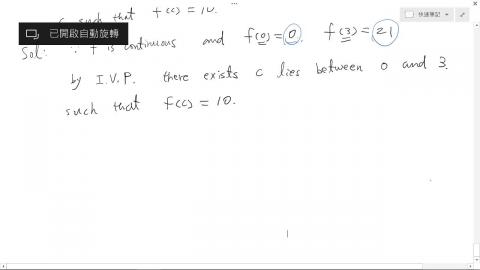 c such that f(c) = 10.
已開啟自動旋轉
快速筆記
Sol: ∵ f is continuous and f(0) = 0, f(3) = 21
by I.V.P. there exists c lies between 0 and 3.
such that f(c) = 10.